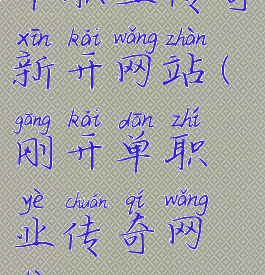 xīn kāi wǎng zhàn
新开网站(
gāng kāi dān zhí
刚开单职
yè chuán qí wǎng
业传奇网